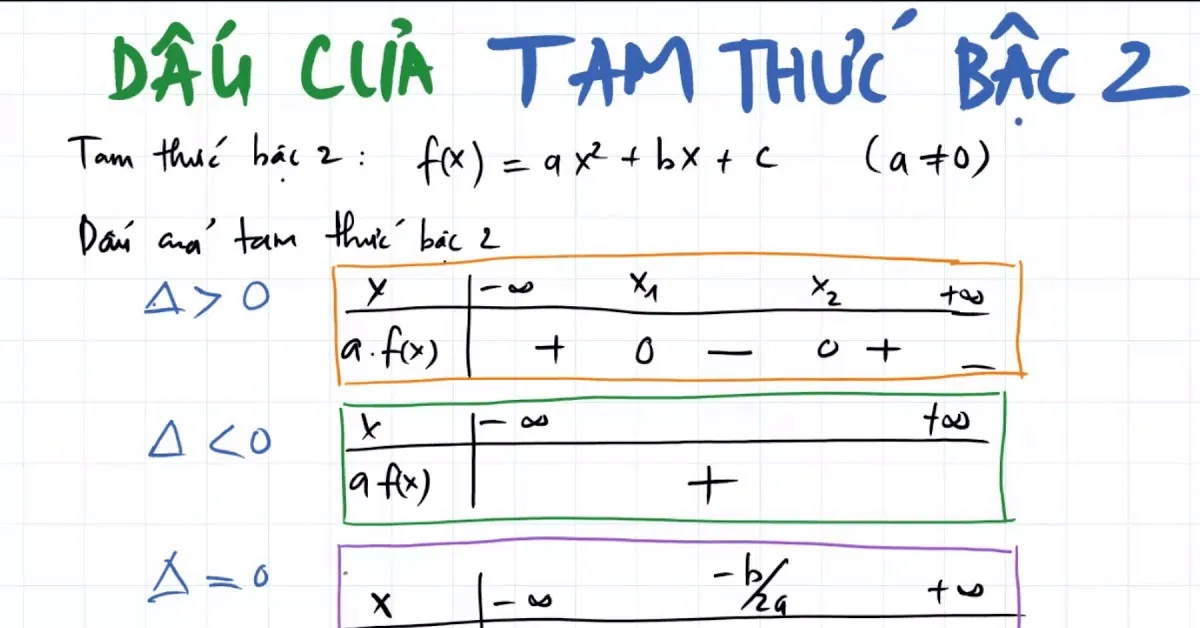 DẤU CỦA TAM THỨC BẬC 2
Tam thức bậc 2 : f(x) = ax² + bx + c (a ≠ 0)
Dấu của tam thức bậc 2
Δ > 0
x -∞ x₁ x₂ +∞
a.f(x) + 0 − 0 + −
Δ < 0
x -∞ +∞
a f(x) +
Δ = 0
x -∞ -b/2a +∞